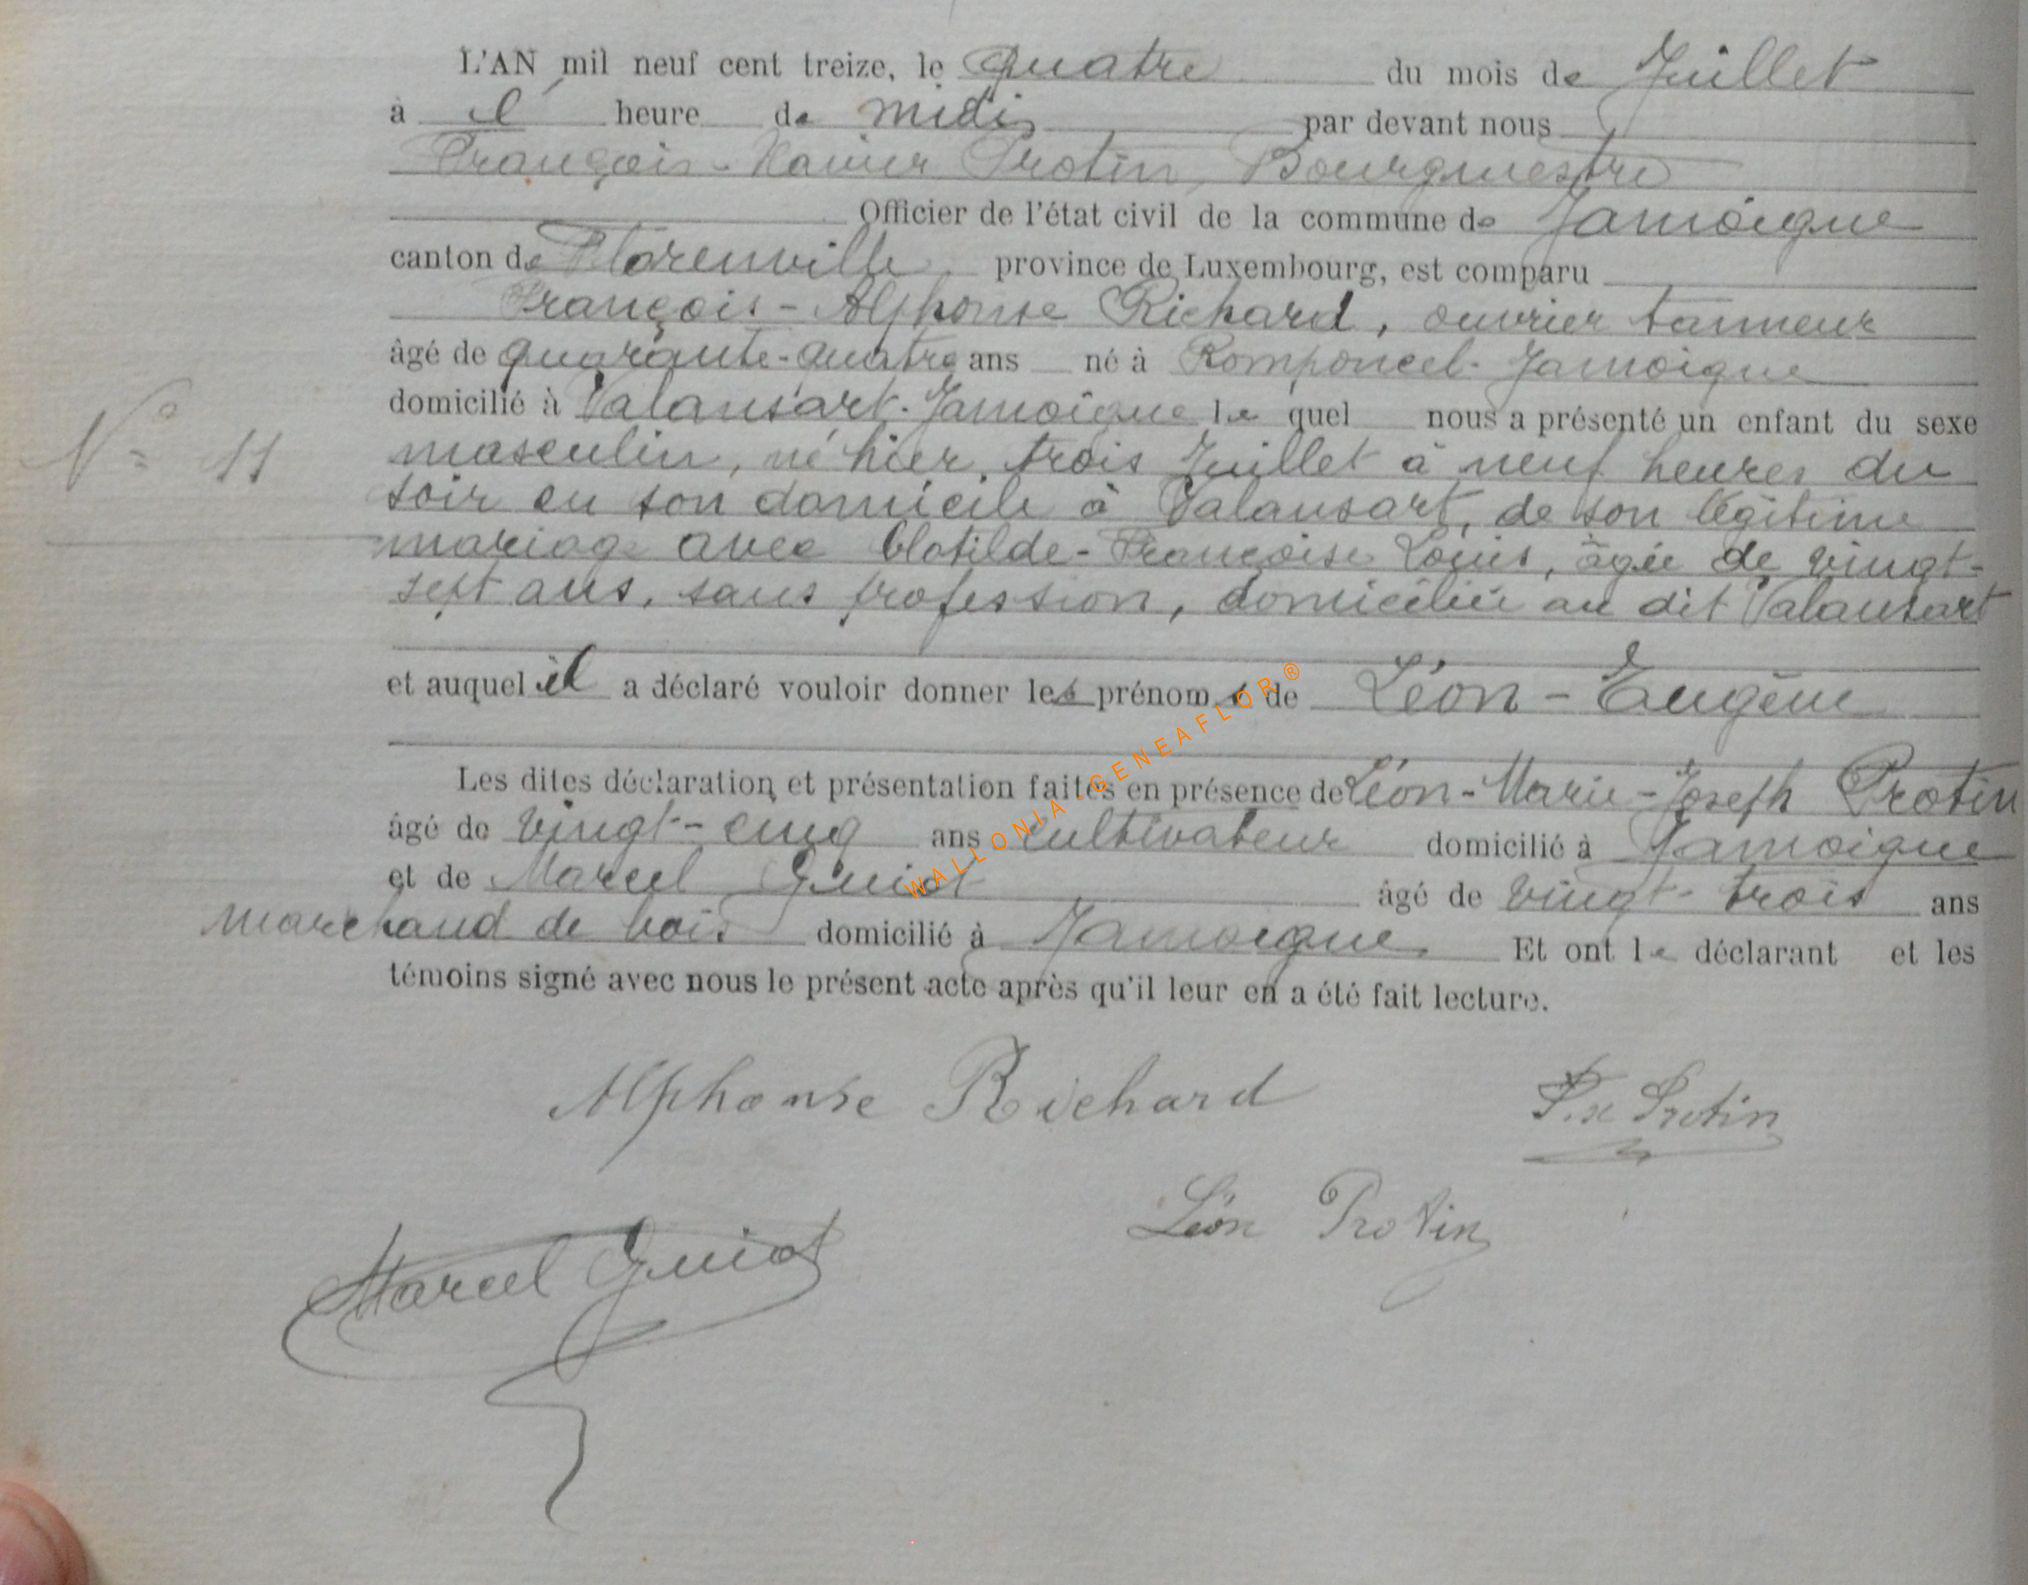 L'AN mil neuf cent treize, le quatre du mois de Juillet
à l' heure de midi, par devant nous
François-Xavier Protin, Bourgmestre
Officier de l'état civil de la commune de Jamoigne
canton de Florenville, province de Luxembourg, est comparu
François-Alphonse Richard, ouvrier tanneur
âgé de quarante-quatre ans né à Romponcel-Jamoigne
domicilié à Valansart-Jamoigne le quel nous a présenté un enfant du sexe
N° 11
masculin, né hier, trois Juillet à neuf heures du
soir en son domicile à Valansart, de son légitime
mariage avec Clotilde-Françoise Louis, âgée de vingt-
sept ans, sans profession, domiciliée au dit Valansart
et auquel il a déclaré vouloir donner les prénoms de Léon-Eugène
Les dites déclaration et présentation faites en présence de Léon-Marie-Joseph Protin
âgé de vingt-cinq ans cultivateur domicilié à Jamoigne
et de Marcel Guiot âgé de vingt-trois ans
marchand de bois domicilié à Jamoigne. Et ont le déclarant et les
témoins signé avec nous le présent acte après qu'il leur en a été fait lecture.
WALLONIA-GENEAFLOR®
Alphonse Richard
F. x Protin
Léon Protin
Marcel Guiot